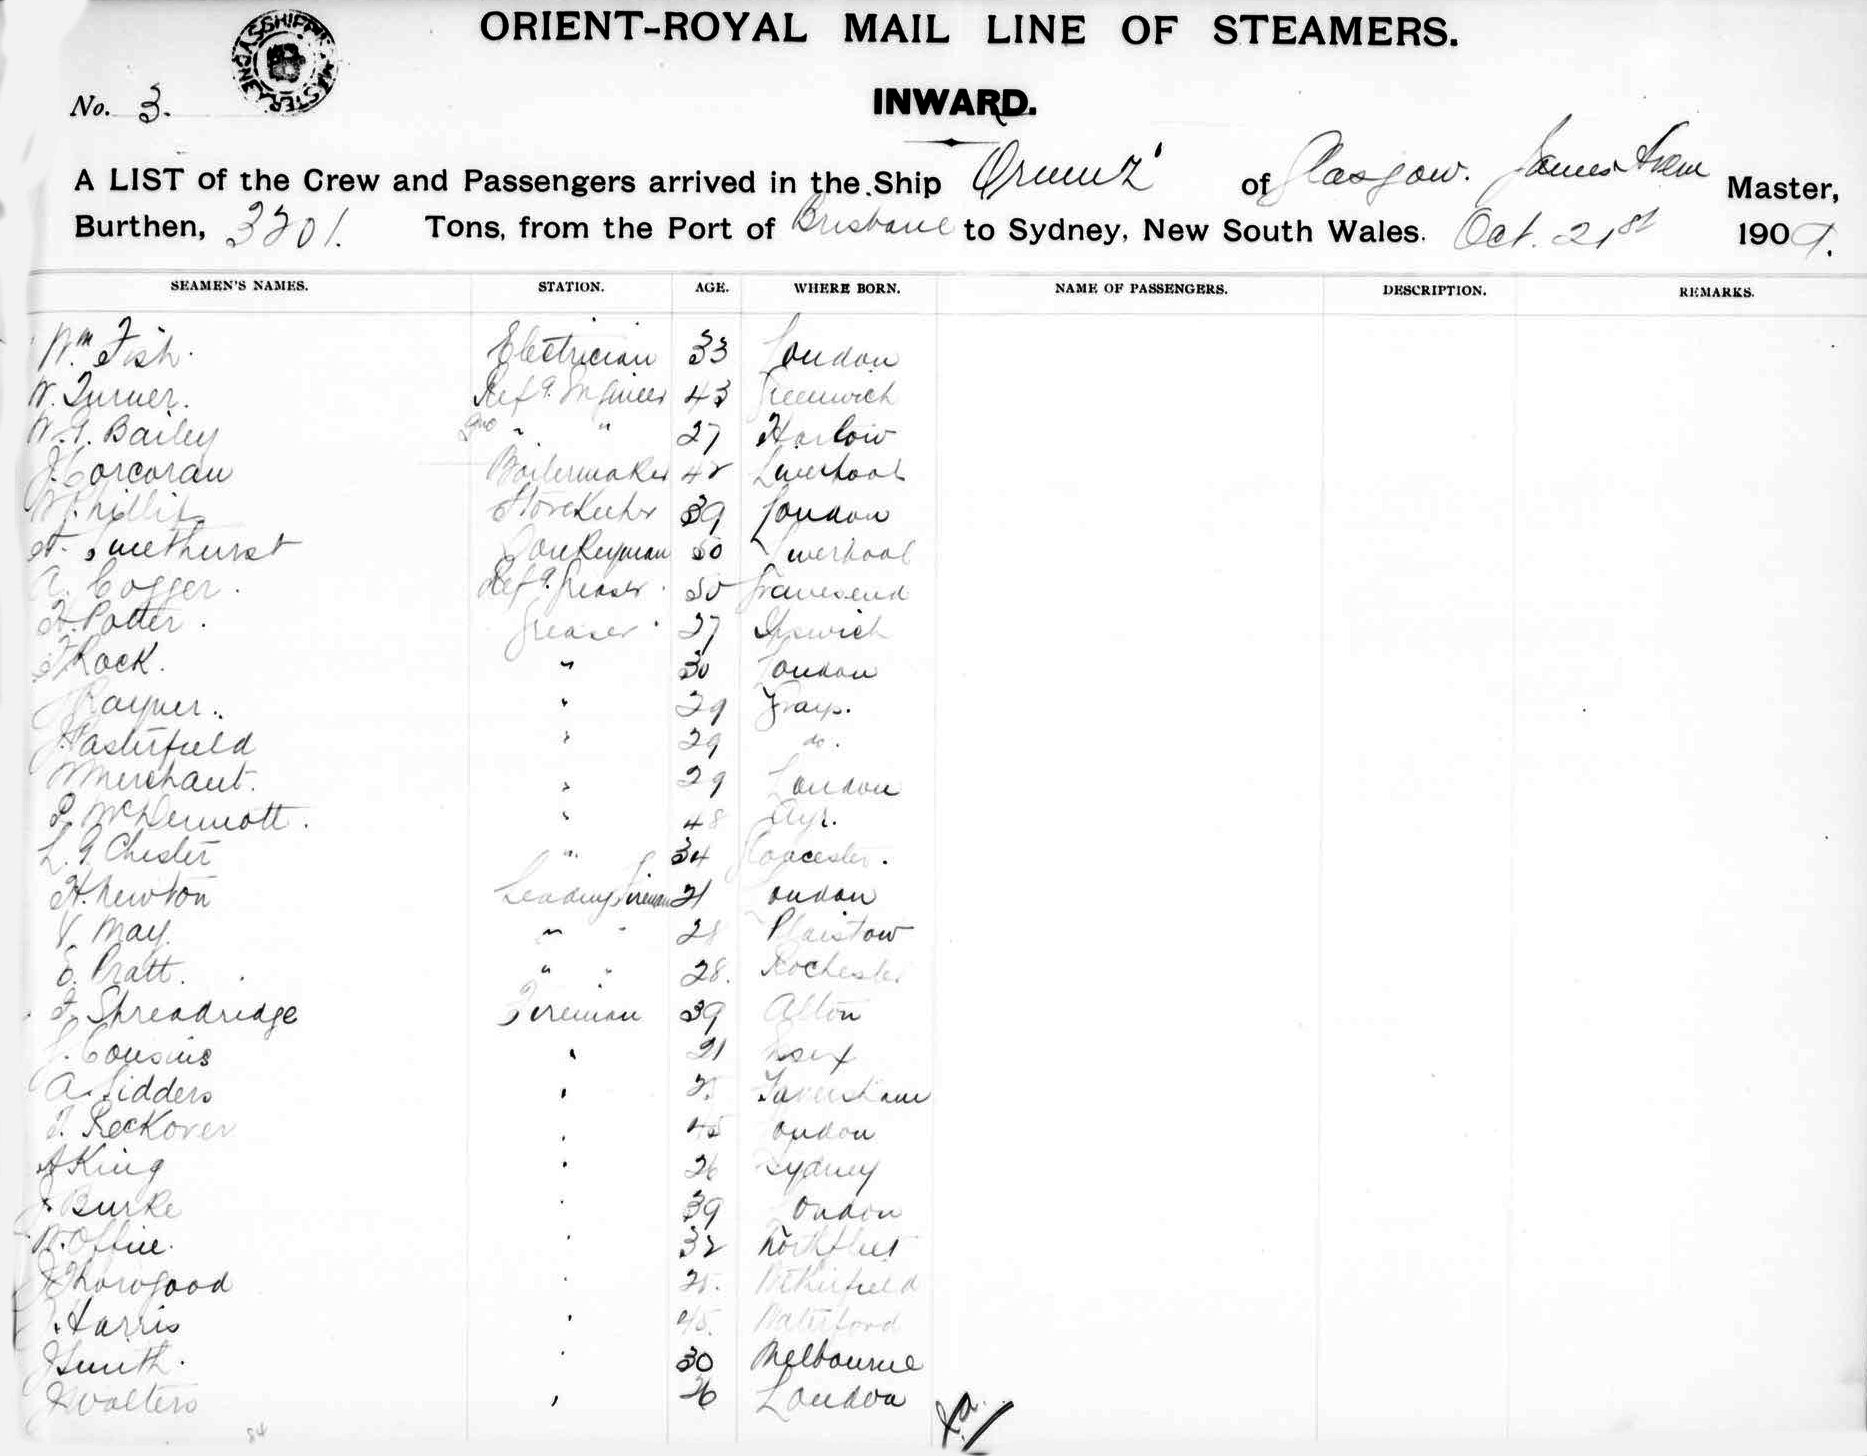 ORIENT-ROYAL MAIL LINE OF STEAMERS.
No. 3.
INWARD.
A LIST of the Crew and Passengers arrived in the Ship Ormuz of Glasgow. James Master,
Burthen, 3201. Tons, from the Port of Brisbane to Sydney, New South Wales. Oct. 21st 1909.
SEAMEN'S NAMES. STATION. AGE. WHERE BORN. NAME OF PASSENGERS. DESCRIPTION. REMARKS.
Wm Fish. Electrician 33 London
W. Turner. Refg. Engineer 43 Greenwich
W.G. Bailey 2nd " " 27 Harlow
J. Corcoran Boilermaker 42 Liverpool
W. Phillips Storekeeper 39 London
Smethurst Donkeyman 50 Liverpool
A. Cogger. Refg. Greaser. 50 Gravesend
H. Potter. Greaser 27 Ipswich
F Rock. " 30 London
J Rayner. " 29 Grays.
J. Pasterfield " 29 do.
W Merchant. " 29 London
P. McDermott. " 48 Ayr.
L. G Chester " 34 Gloucester.
H. Newton Leading Fireman 21 London
V. May. " " 28 Plaistow
E. Pratt. " " 28. Rochester
F. Spreadridge Fireman 39 Alton
J. Cousins " 21 Essex
A. Sidders " 25 Faversham
T. Reckover " 45 London
A King " 26 Sydney
J. Burke " 39 London
W. Office. " 32 Northfleet
J Thorogood " 25.
J. Harris " 45. Waterford
J Smith. " 30 Melbourne
J Walters " 26 London
84